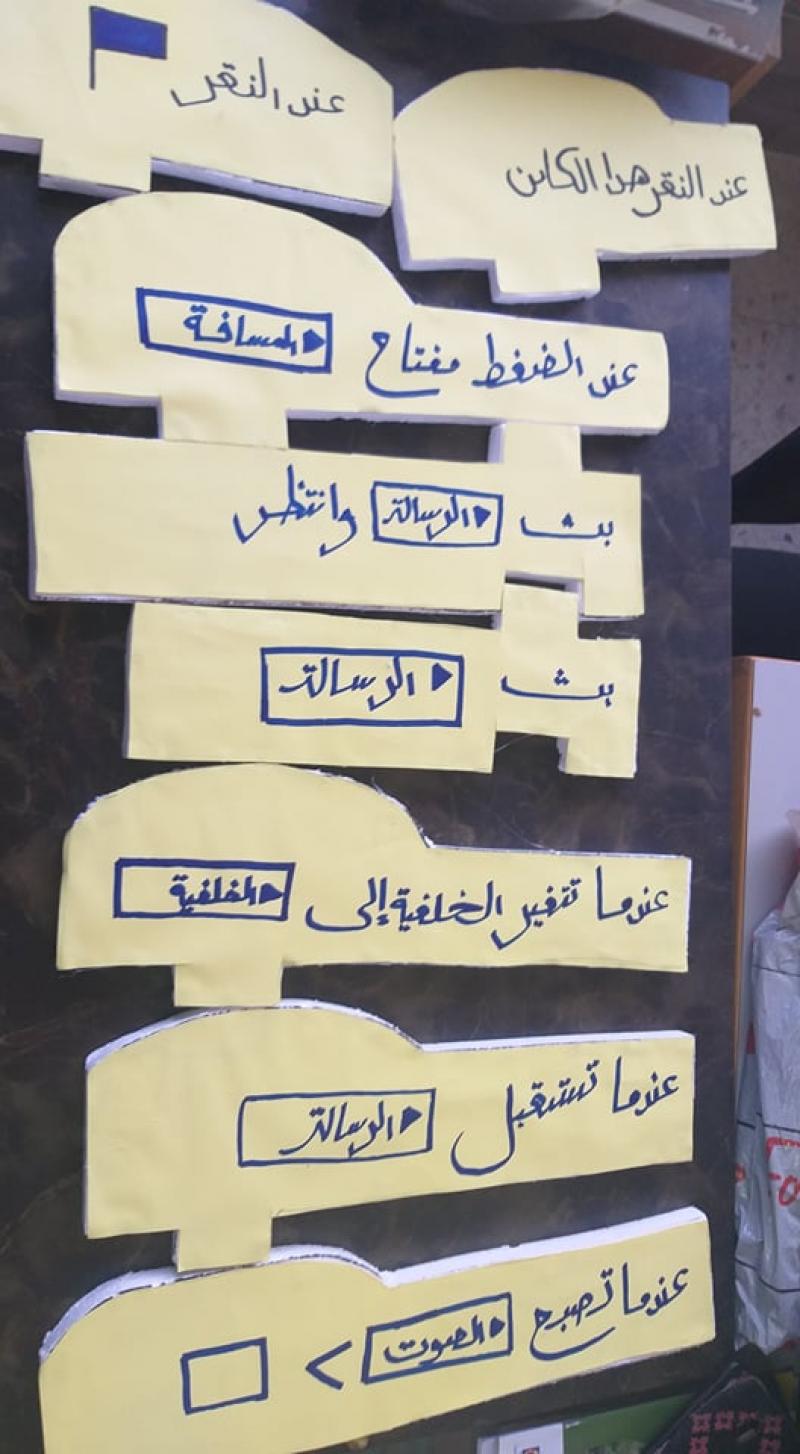 عند النقر
عند النقر هذا الكائن
عند الضغط مفتاح المسافة
بث الرسالة وانتظر
بث الرسالة
عندما تتغير الخلفية إلى الخلفية
عندما تستقبل الرسالة
عندما تصبح الصوت >